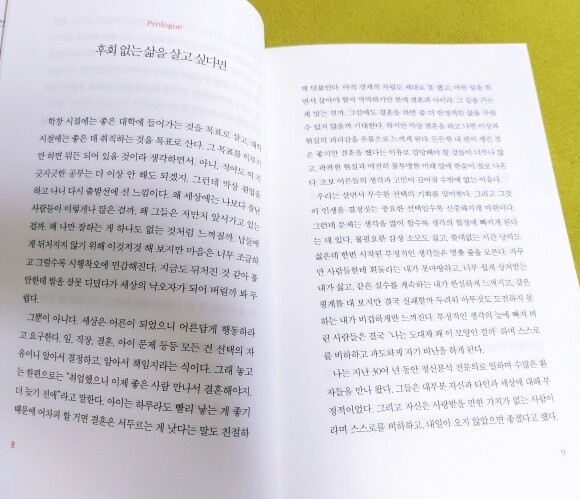 Prologue
후회 없는 삶을 살고 싶다면
학창 시절에는 좋은 대학에 들어가는 것을 목표로 살고, 대학
시절에는 좋은 데 취직하는 것을 목표로 산다. 그 목표를 이루기
만 하면 뭐든 되어 있을 것이라 생각하면서. 아니, 적어도 이 지
긋지긋한 공부는 더 이상 안 해도 되겠지. 그런데 막상 취업을
하고 나니 다시 출발선에 선 느낌이다. 왜 세상에는 나보다 잘난
사람들이 이렇게나 많은 걸까. 왜 그들은 저만치 앞서가고 있는
걸까. 왜 나만 잘하는 게 하나도 없는 것처럼 느껴질까. 남들에
게 뒤처지지 않기 위해 이것저것 해 보지만 마음은 너무 조급하
고 그럴수록 시행착오에 민감해진다. 지금도 뒤처진 것 같아 불
안한데 발을 잘못 디뎠다가 세상의 낙오자가 되어 버릴까 봐 두
렵다.
그뿐이 아니다. 세상은 어른이 되었으니 어른답게 행동하라
고 요구한다. 일, 직장, 결혼, 아이 문제 등등 모든 건 선택의 자
유이니 알아서 결정하고, 알아서 책임지라는 식이다. 그래 놓고
는 한편으로는 “취업했으니 이제 좋은 사람 만나서 결혼해야지.
더 늦기 전에”라고 말한다. 아이는 하루라도 빨리 낳는 게 좋기
때문에 어차피 할 거면 결혼은 서두르는 게 낫다는 말도 친절하
8
게 덧붙인다. 아직 경제적 자립도 제대로 못 했고, 어떤 일을 하
면서 살아야 할지 막막하기만 한데 결혼과 아이라. 그 길을 가는
게 맞는 걸까. 그럼에도 결혼을 하면 좀 더 안정적인 삶을 꾸릴
수 있지 않을까 기대한다. 하지만 막상 결혼을 하고 나면 이상과
현실의 커다란 간극을 느끼게 된다. 든든한 내 편이 생긴 것
은 좋지만 결혼을 했다는 이유로 감당해야 할 것들이 너무나 많
고, 팍팍한 현실과 여전히 불투명한 미래 앞에 한숨이 절로 나온
다. 초보 어른들의 생각과 고민이 깊어질 수밖에 없는 이유다.
우리는 살면서 무수한 선택의 기회를 맞이한다. 그리고 그것
이 인생을 결정짓는 중요한 선택일수록 신중해지게 마련이다.
그런데 문제는 생각을 많이 할수록 생각의 함정에 빠지게 된다
는 데 있다. 불필요한 감정 소모도 싫고, 쓸데없는 시간 낭비도
싫은데 한번 시작된 부정적인 생각들은 멈출 줄을 모른다. 자꾸
만 사람들한테 휘둘리는 내가 못마땅하고, 너무 쉽게 상처받는
내가 싫고, 같은 실수를 계속하는 내가 한심하게 느껴지고, 갖은
핑계를 대 보지만 결국 실패할까 두려워 아무것도 도전하지 못
하는 내가 비겁하게만 느껴진다. 부정적인 생각의 늪에 빠져 버
린 사람들은 결국 ‘나는 도대체 왜 이 모양인 걸까’ 하며 스스로
를 비하하고 과도하게 자기 비난을 하게 된다.
나는 지난 30여 년 동안 정신분석 전문의로 일하며 수많은 환
자들을 만나 왔다. 그들은 대부분 자신과 타인과 세상에 대해 부
정적이었다. 그리고 자신은 사랑받을 만한 가치가 없는 사람이
라며 스스로를 비하하고, 내일이 오지 않았으면 좋겠다고 했다.
9